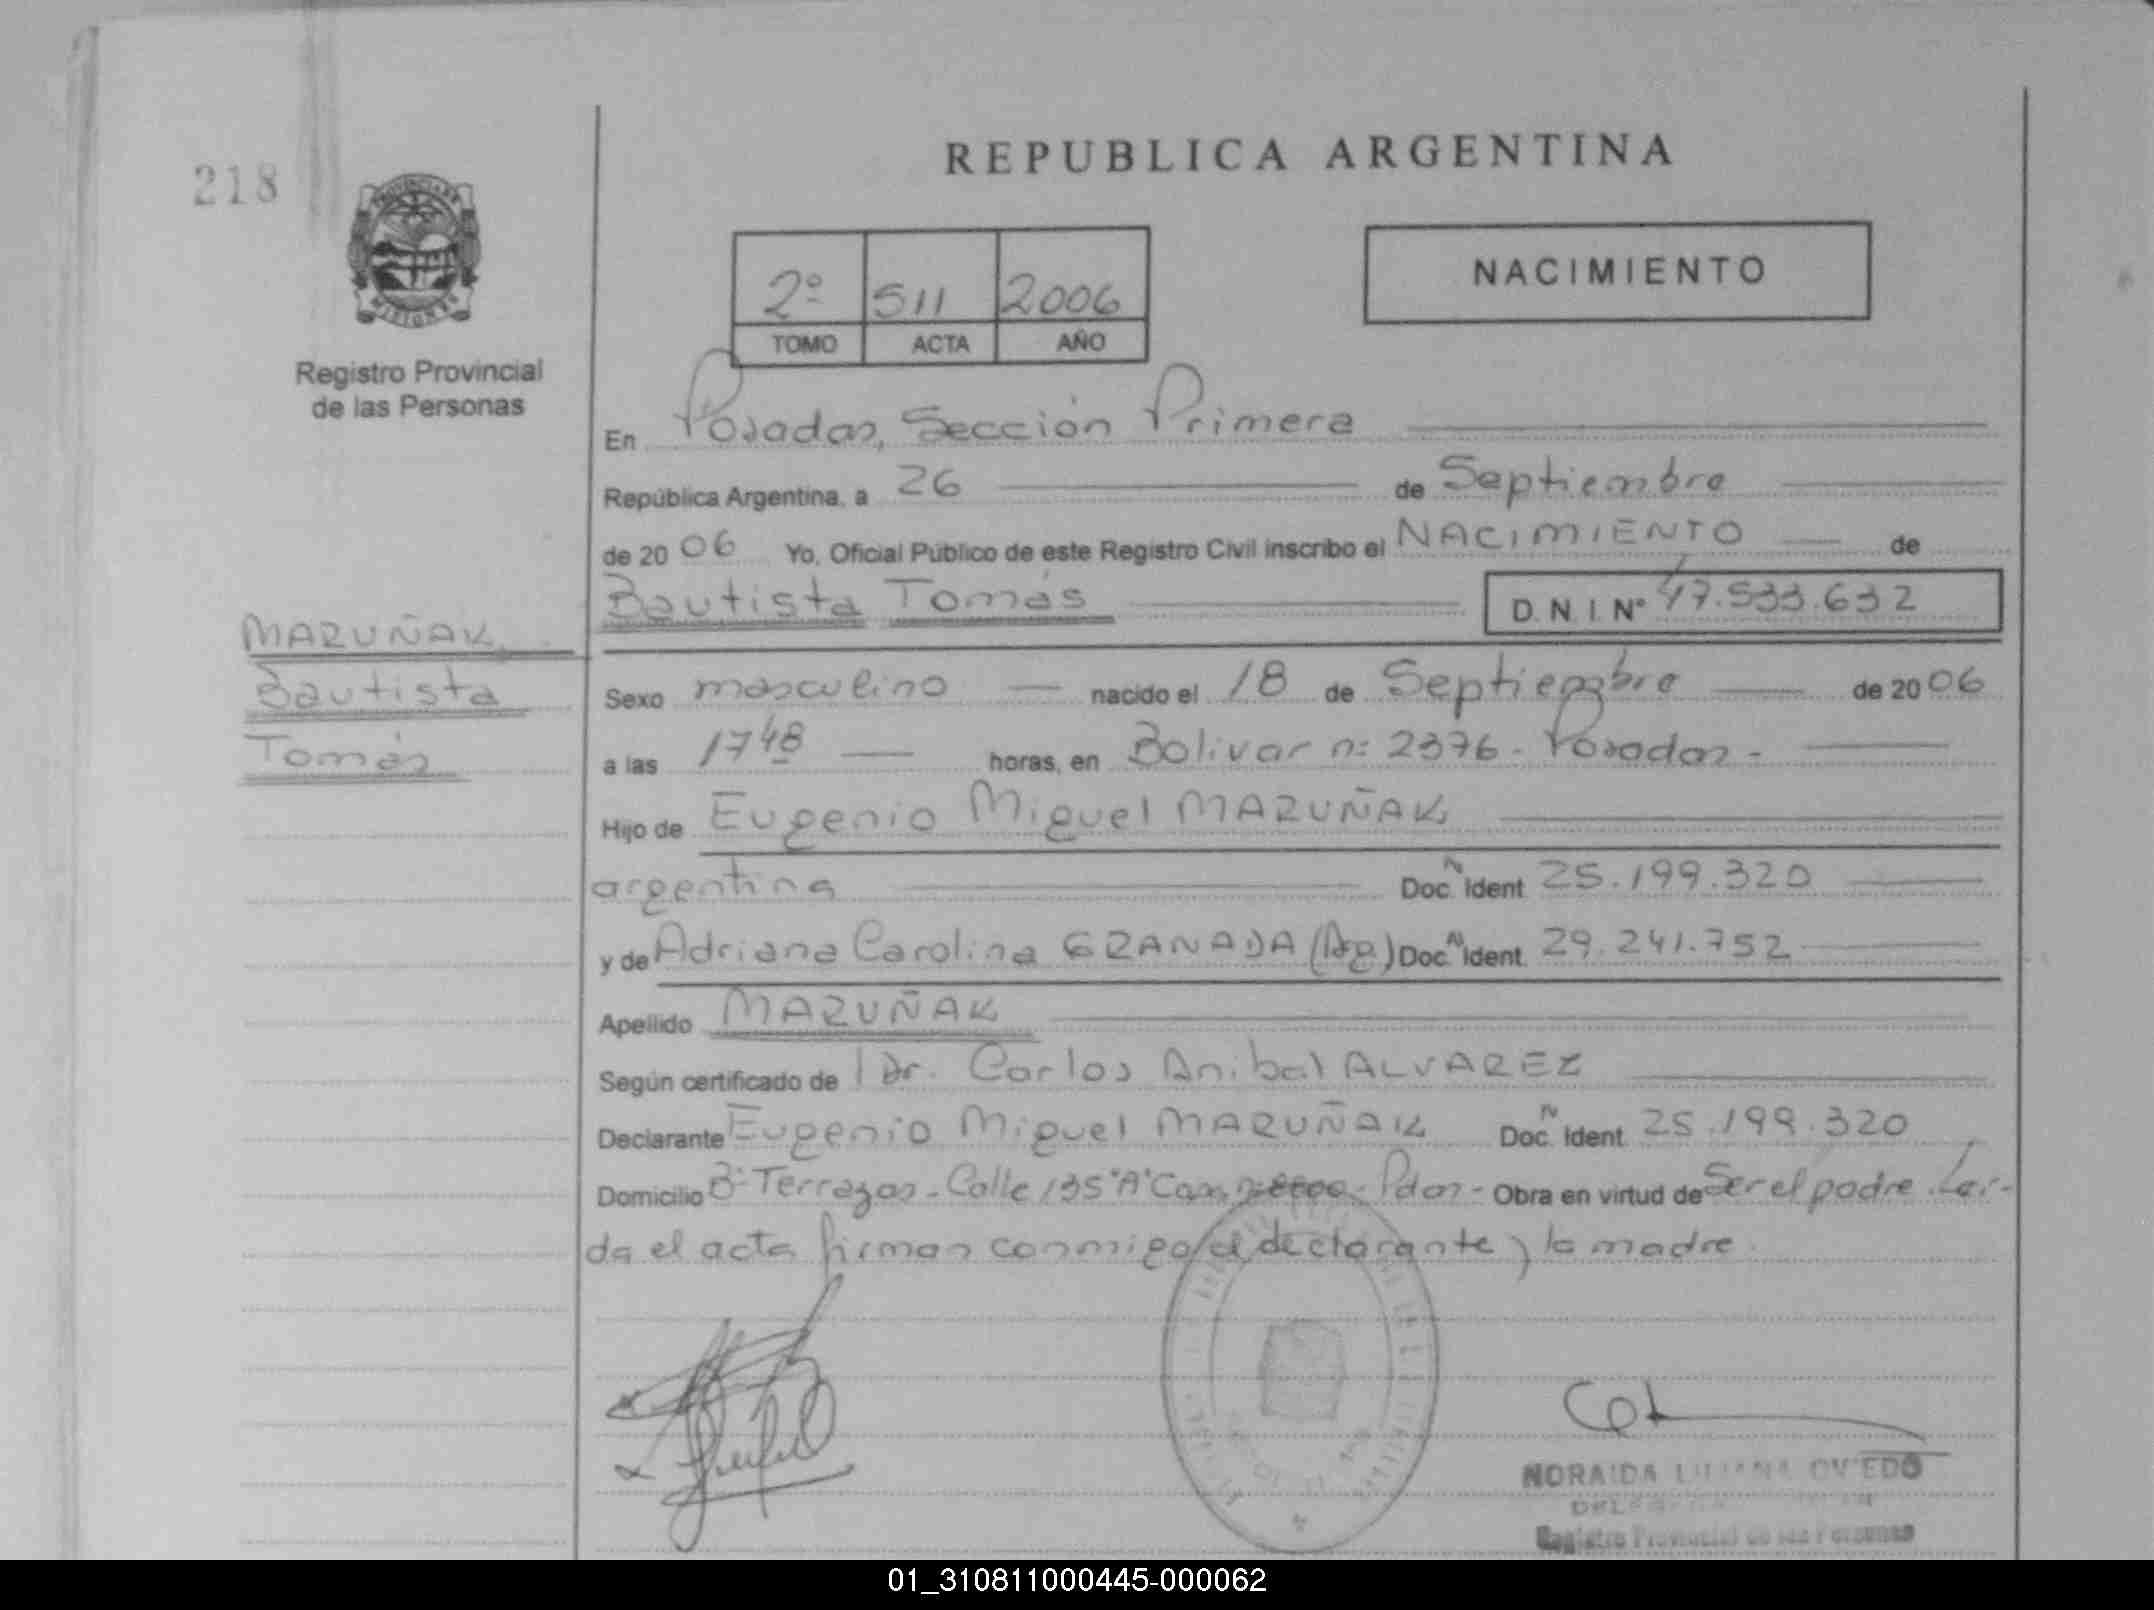 218
REPUBLICA ARGENTINA
NACIMIENTO
2º 511 2006
TOMO ACTA AÑO
Registro Provincial
de las Personas
En Posadas, Sección Primera
República Argentina, a 26 de Septiembre
de 20 06 Yo, Oficial Público de este Registro Civil inscribo el NACIMIENTO de
Bautista Tomás D.N.I.Nº 47.533.632
MAZUÑAK
Bautista
Tomás
Sexo masculino nacido el 18 de Septiembre de 20 06
a las 17 48 horas, en Bolivar nº 2376 - Posadas -
Hijo de Eugenio Miguel MAZUÑAK
argentina Doc. N Ident. 25.199.320
y de Adriana Carolina GRANADA (Arg) Doc. N Ident. 29.241.752
Apellido MAZUÑAK
Según certificado de Dr. Carlos Anibal ALVAREZ
Declarante Eugenio Miguel MAZUÑAK Doc. N Ident. 25.199.320
Domicilio Bº Terrazas - Calle 135 "A" Pdas - Obra en virtud de Ser el padre. Leí-
da el acta firman conmigo el declarante y la madre.
NORAIDA LILIANA OVIEDO
Registro Provincial de las Personas
01_310811000445-000062